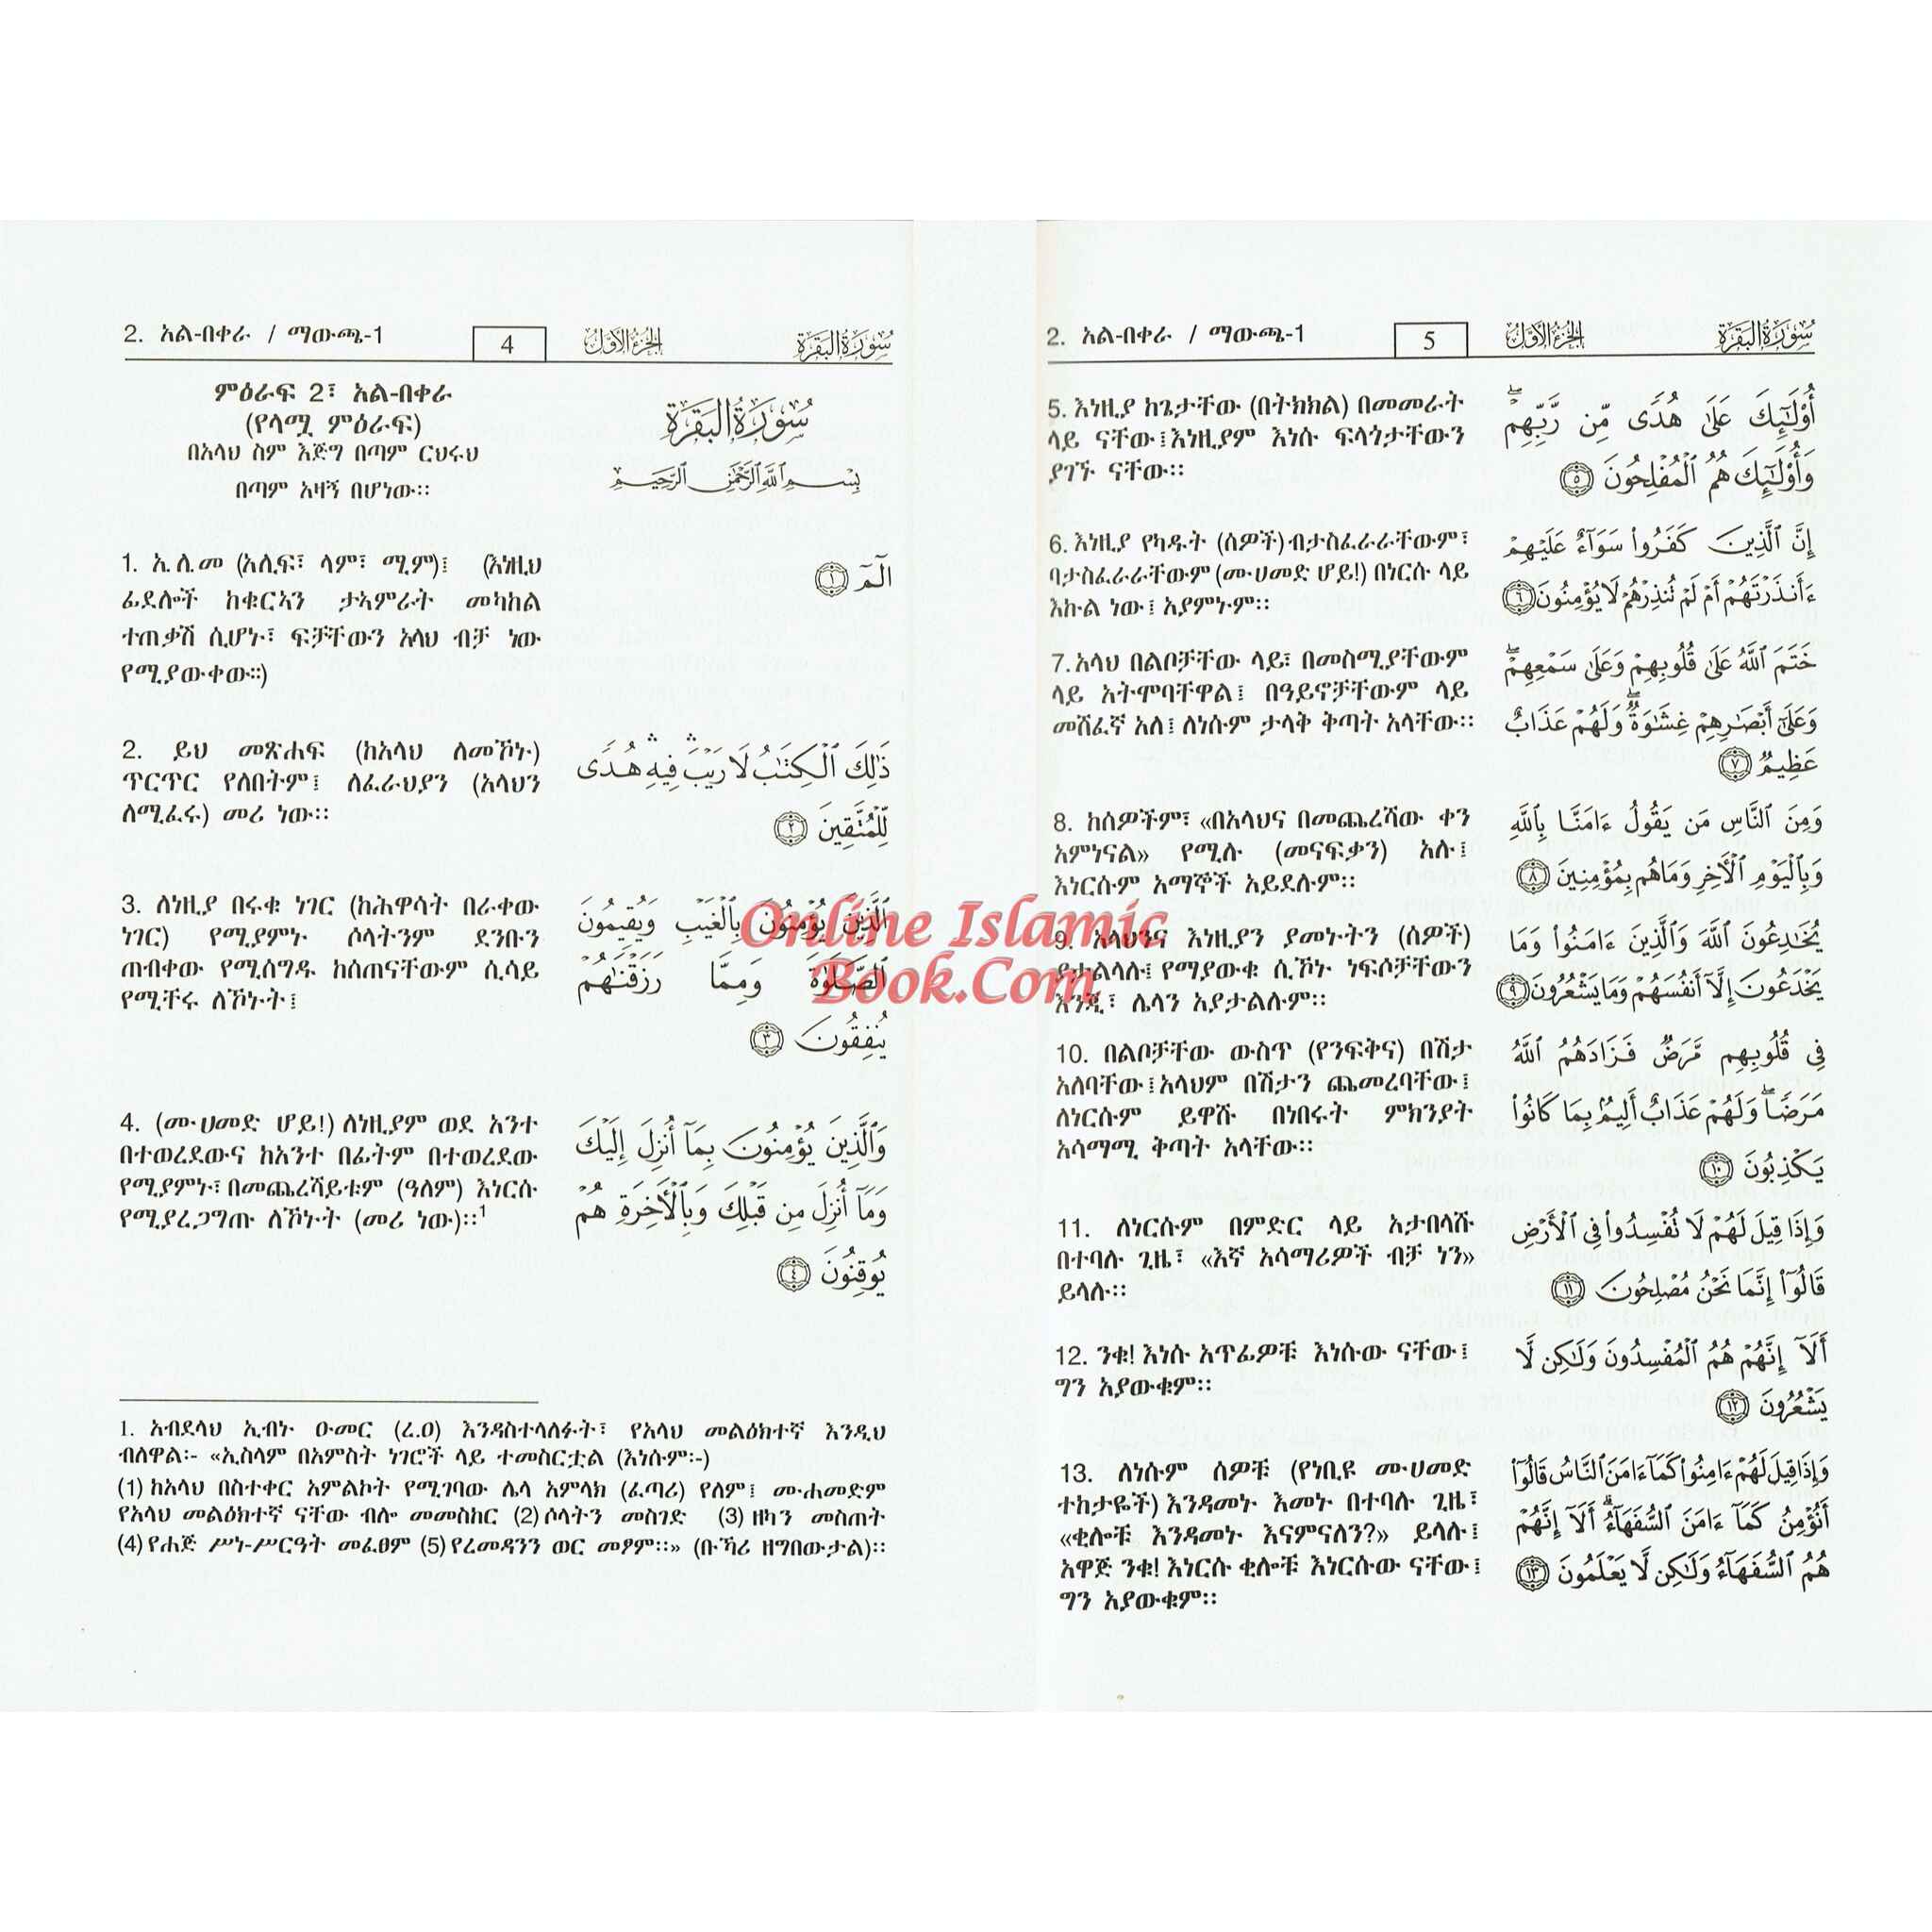 2. አል-በቀራ / ማውጫ-1
4
الجزء الأول
سورة البقرة
ምዕራፍ 2፣ አል-በቀራ
(የላሟ ምዕራፍ)
በአላህ ስም እጅግ በጣም ርህሩህ
በጣም አዛኝ በሆነው።
سُورَةُ البَقَرَةِ
بِسْمِ ٱللَّهِ ٱلرَّحْمَٰنِ ٱلرَّحِيمِ
1. አ.ሊ.መ (አሊፍ፣ ላም፣ ሚም)፤ (እነዚህ
ፊደሎች ከቁርኣን ታኣምራት መካከል
ተጠቃሽ ሲሆኑ፣ ፍቻቸውን አላህ ብቻ ነው
የሚያውቀው።)
الٓمٓ ١
2. ይህ መጽሐፍ (ከአላህ ለመኾኑ)
ጥርጥር የለበትም፤ ለፈራህያን (አላህን
ለሚፈሩ) መሪ ነው።
ذَٰلِكَ ٱلْكِتَٰبُ لَا رَيْبَ ۛ فِيهِ ۛ هُدًى
لِّلْمُتَّقِينَ ٢
3. ለነዚያ በሩቁ ነገር (ከሕዋሳት በራቀው
ነገር) የሚያምኑ ሶላትንም ደንቡን
ጠብቀው የሚሰግዱ ከሰጠናቸውም ሲሳይ
የሚቸሩ ለኾኑት፤
ٱلَّذِينَ يُؤْمِنُونَ بِٱلْغَيْبِ وَيُقِيمُونَ
ٱلصَّلَوٰةَ وَمِمَّا رَزَقْنَٰهُمْ
يُنفِقُونَ ٣
4. (ሙሀመድ ሆይ!) ለነዚያም ወደ አንተ
በተወረደውና ከአንተ በፊትም በተወረደው
የሚያምኑ፣ በመጨረሻይቱም (ዓለም) እነርሱ
የሚያረጋግጡ ለኾኑት (መሪ ነው)።1
وَٱلَّذِينَ يُؤْمِنُونَ بِمَآ أُنزِلَ إِلَيْكَ
وَمَآ أُنزِلَ مِن قَبْلِكَ وَبِٱلْءَاخِرَةِ هُمْ
يُوقِنُونَ ٤
1. አብደላህ ኢብኑ ዑመር (ረ.ዐ) እንዳስተላለፉት፣ የአላህ መልዕክተኛ እንዲህ
ብለዋል፦ «ኢስላም በአምስት ነገሮች ላይ ተመስርቷል (እነሱም፦)
(1) ከአላህ በስተቀር አምልኮት የሚገባው ሌላ አምላክ (ፈጣሪ) የለም፤ ሙሐመድም
የአላህ መልዕክተኛ ናቸው ብሎ መመስከር (2) ሶላትን መስገድ (3) ዘካን መስጠት
(4) የሐጅ ሥነ-ሥርዓት መፈፀም (5) የረመዳንን ወር መፆም።» (ቡኻሪ ዘግበውታል)።
2. አል-በቀራ / ማውጫ-1
5
الجزء الأول
سورة البقرة
5. እነዚያ ከጌታቸው (በትክክል) በመመራት
ላይ ናቸው፤ እነዚያም እነሱ ፍላጎታቸውን
ያገኙ ናቸው።
أُو۟لَٰٓئِكَ عَلَىٰ هُدًى مِّن رَّبِّهِمْ ۖ
وَأُو۟لَٰٓئِكَ هُمُ ٱلْمُفْلِحُونَ ٥
6. እነዚያ የካዱት (ሰዎች) ብታስፈራራቸውም፣
ባታስፈራራቸውም (ሙሀመድ ሆይ!) በነርሱ ላይ
እኩል ነው፤ አያምኑም።
إِنَّ ٱلَّذِينَ كَفَرُوا۟ سَوَآءٌ عَلَيْهِمْ
ءَأَنذَرْتَهُمْ أَمْ لَمْ تُنذِرْهُمْ لَا يُؤْمِنُونَ ٦
7. አላህ በልቦቻቸው ላይ፣ በመስሚያቸውም
ላይ አትሞባቸዋል፤ በዓይኖቻቸውም ላይ
መሸፈኛ አለ፤ ለነሱም ታላቅ ቅጣት አላቸው።
خَتَمَ ٱللَّهُ عَلَىٰ قُلُوبِهِمْ وَعَلَىٰ سَمْعِهِمْ ۖ
وَعَلَىٰٓ أَبْصَٰرِهِمْ غِشَٰوَةٌ ۖ وَلَهُمْ عَذَابٌ
عَظِيمٌ ٧
8. ከሰዎችም፣ «በአላህና በመጨረሻው ቀን
አምነናል» የሚሉ (መናፍቃን) አሉ፤
እነርሱም አማኞች አይደሉም።
وَمِنَ ٱلنَّاسِ مَن يَقُولُ ءَامَنَّا بِٱللَّهِ
وَبِٱلْيَوْمِ ٱلْءَاخِرِ وَمَا هُم بِمُؤْمِنِينَ ٨
9. አላህንና እነዚያን ያመኑትን (ሰዎች)
ያታልላሉ፤ የማያውቁ ሲኾኑ ነፍሶቻቸውን
እንጂ፣ ሌላን አያታልሉም።
يُخَٰدِعُونَ ٱللَّهَ وَٱلَّذِينَ ءَامَنُوا۟ وَمَا
يَخْدَعُونَ إِلَّآ أَنفُسَهُمْ وَمَا يَشْعُرُونَ ٩
10. በልቦቻቸው ውስጥ (የንፍቅና) በሽታ
አለባቸው፤ አላህም በሽታን ጨመረባቸው፤
ለነርሱም ይዋሹ በነበሩት ምክንያት
አሳማሚ ቅጣት አላቸው።
فِى قُلُوبِهِم مَّرَضٌ فَزَادَهُمُ ٱللَّهُ
مَرَضًا ۖ وَلَهُمْ عَذَابٌ أَلِيمٌۢ بِمَا كَانُوا۟
يَكْذِبُونَ ١٠
11. ለነርሱም በምድር ላይ አታበላሹ
በተባሉ ጊዜ፣ «እኛ አሳማሪዎች ብቻ ነን»
ይላሉ።
وَإِذَا قِيلَ لَهُمْ لَا تُفْسِدُوا۟ فِى ٱلْأَرْضِ
قَالُوٓا۟ إِنَّمَا نَحْنُ مُصْلِحُونَ ١١
12. ንቁ! እነሱ አጥፊዎቹ እነሱው ናቸው፤
ግን አያውቁም።
أَلَآ إِنَّهُمْ هُمُ ٱلْمُفْسِدُونَ وَلَٰكِن لَّا
يَشْعُرُونَ ١٢
13. ለነሱም ሰዎቹ (የነቢዩ ሙሀመድ
ተከታዬች) እንዳመኑ እመኑ በተባሉ ጊዜ፣
«ቂሎቹ እንዳመኑ እናምናለን?» ይላሉ፤
አዋጅ ንቁ! እነርሱ ቂሎቹ እነርሱው ናቸው፤
ግን አያውቁም።
وَإِذَا قِيلَ لَهُمْ ءَامِنُوا۟ كَمَآ ءَامَنَ ٱلنَّاسُ قَالُوٓا۟
أَنُؤْمِنُ كَمَآ ءَامَنَ ٱلسُّفَهَآءُ ۗ أَلَآ إِنَّهُمْ
هُمُ ٱلسُّفَهَآءُ وَلَٰكِن لَّا يَعْلَمُونَ ١٣
Online Islamic
Book.Com